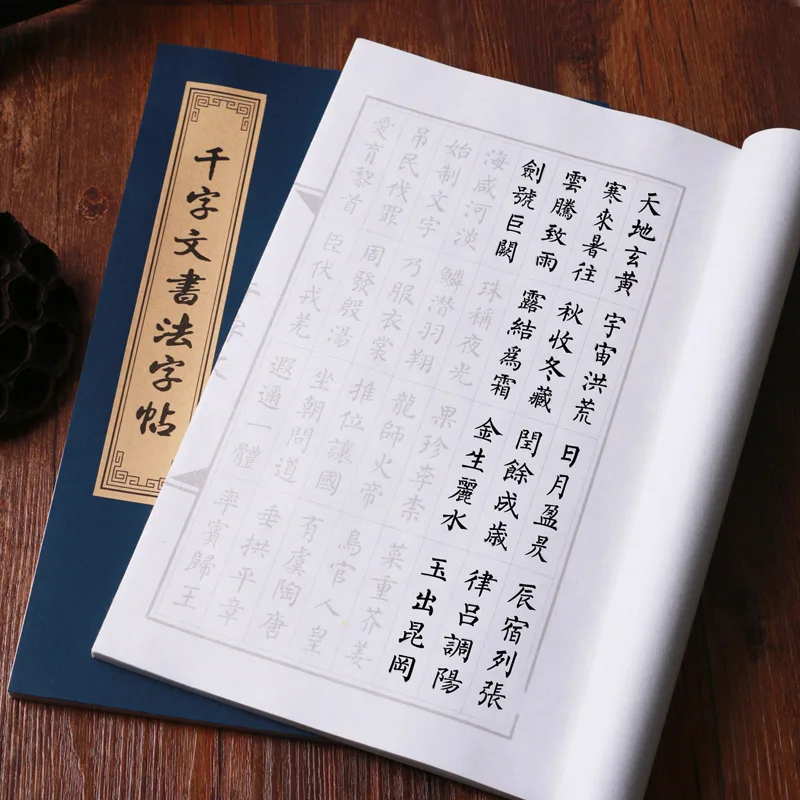 千字文書法字帖
天地玄黃宇宙洪荒日月盈昃辰宿列張
寒來暑往秋收冬藏閏餘成歲律呂調陽
雲騰致雨露結爲霜金生麗水玉出昆岡
劍號巨闕珠稱夜光果珍李柰菜重芥姜
海咸河淡鱗潛羽翔龍師火帝鳥官人皇
始制文字乃服衣裳推位讓國有虞陶唐
吊民伐罪周發殷湯坐朝問道垂拱平章
愛育黎首臣伏戎羌遐邇一體率賓歸王